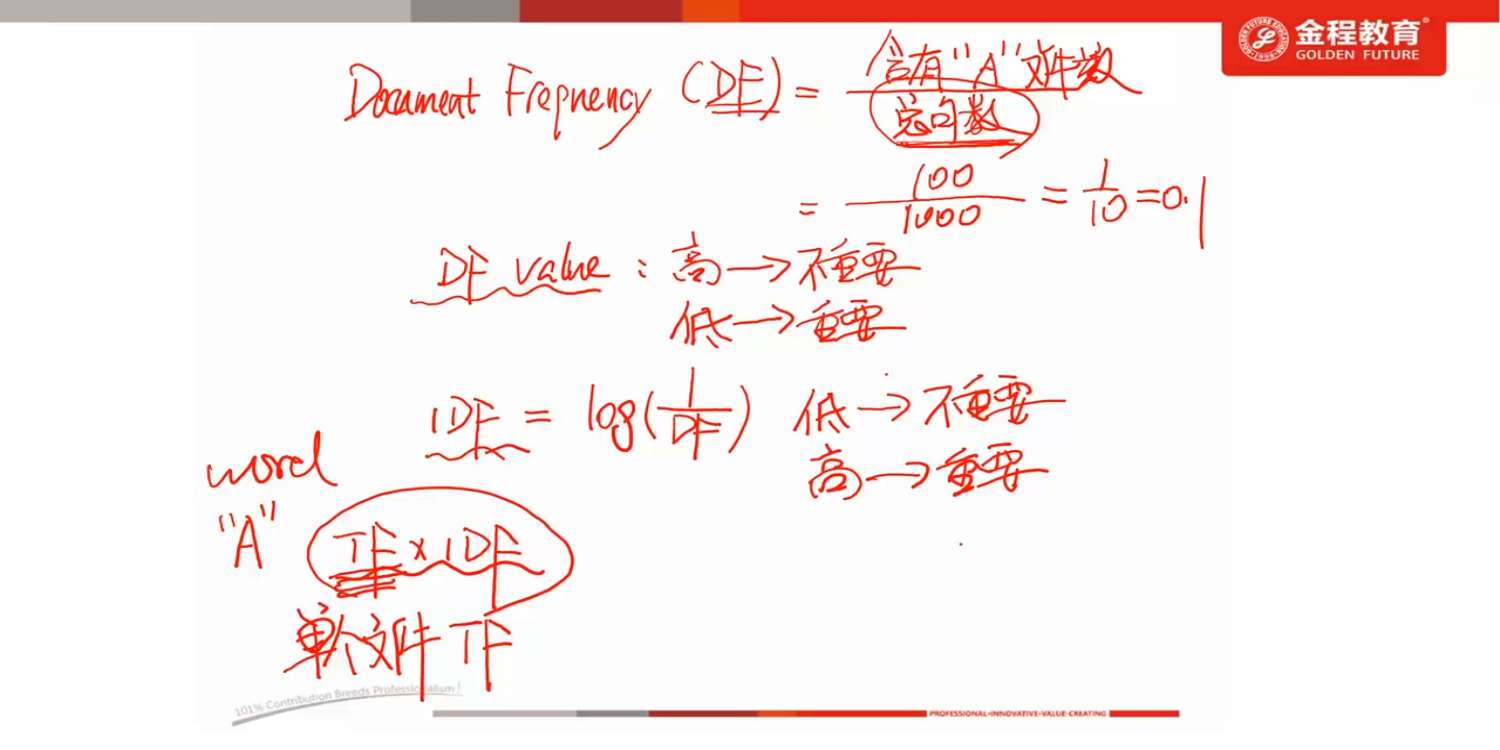 金程教育®
GOLDEN FUTURE
Document Freqnency (DF) = 含有"A"文件数 / 总句数
= 100 / 1000 = 1/10 = 0.1
DF value : 高 → 不重要
低 → 重要
IDF = log(1/DF) 低 → 不重要
高 → 重要
word
"A" TF × IDF
单个文件 TF
101% Contribution Breeds Professionalism!
PROFESSIONAL•INNOVATIVE•VALUE-CREATING